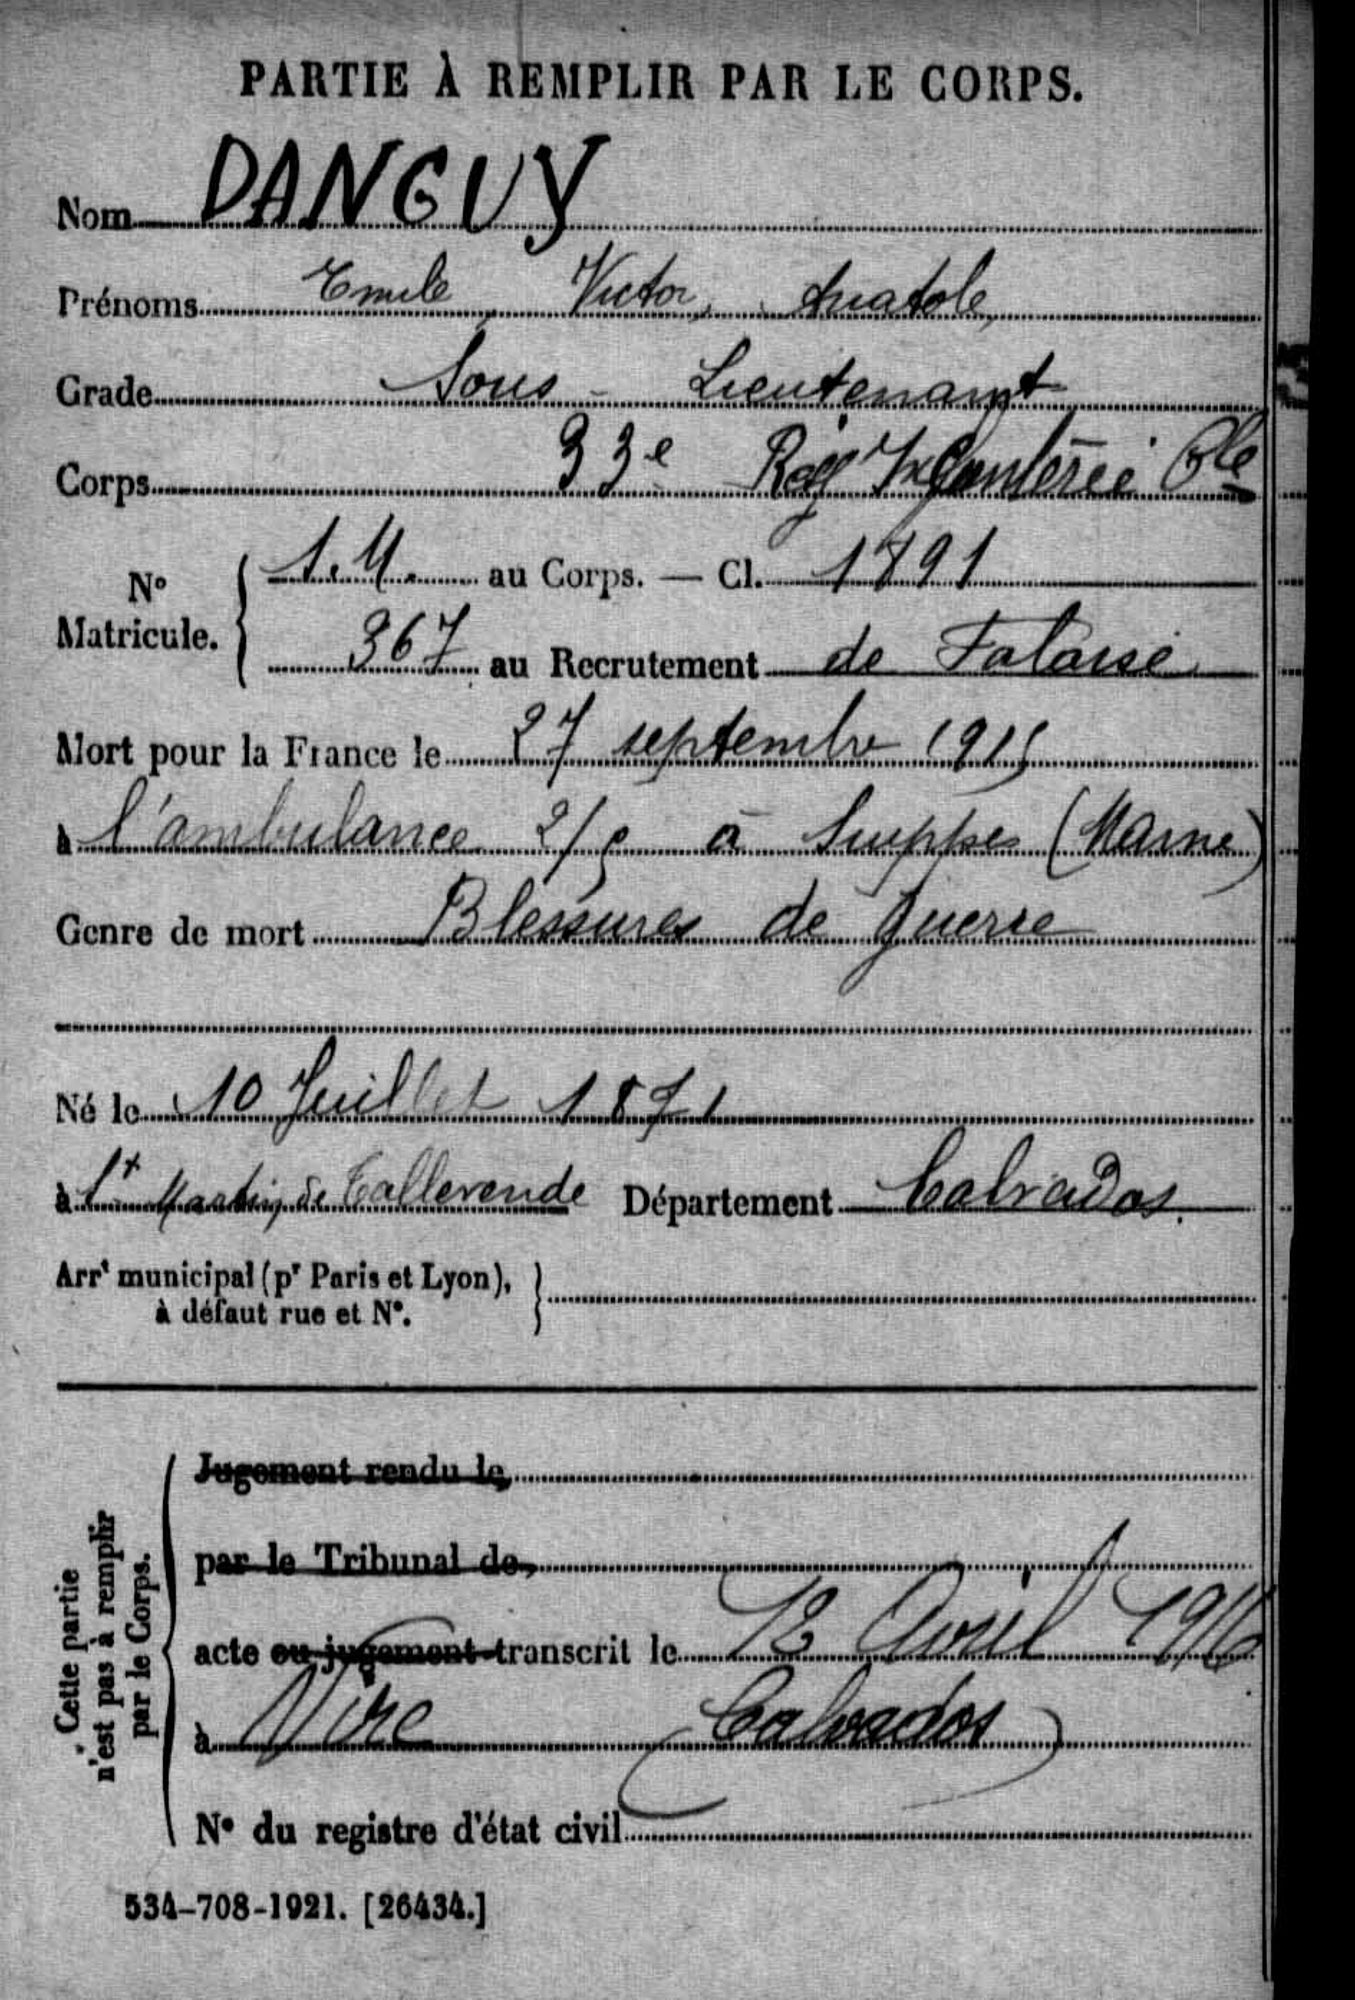 PARTIE À REMPLIR PAR LE CORPS.
Nom DANGUY
Prénoms Emile, Victor, Anatole,
Grade Sous - Lieutenant
Corps 33e Reg Infanterie Cle
No Matricule. { S.M. au Corps. — Cl. 1891
367 au Recrutement de Falaise
Mort pour la France le 27 septembre 1915
à l'ambulance 2/5 à Suippes (Marne)
Genre de mort Blessures de guerre
Né le 10 Juillet 1871
à St Martin de Tallevende Département Calvados.
Arrt municipal (pr Paris et Lyon), }
à défaut rue et N°.
Cette partie n'est pas à remplir par le Corps.
Jugement rendu le
par le Tribunal de
acte ou jugement transcrit le 12 Avril 1916
à Vire (Calvados)
N° du registre d'état civil
534-708-1921. [26434.]